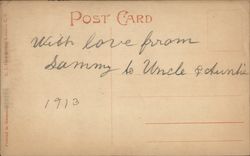 POST CARD
With love from
Sammy to Uncle & Auntie
1913